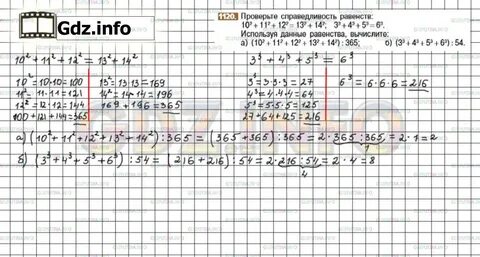 Gdz.info
1120. Проверьте справедливость равенств:
10² + 11² + 12² = 13² + 14²; 3³ + 4³ + 5³ = 6³.
Используя данные равенства, вычислите:
а) (10² + 11² + 12² + 13² + 14²) : 365; б) (3³ + 4³ + 5³ + 6³) : 54.
10² + 11² + 12² = 13² + 14²
10² = 10·10 = 100
11² = 11·11 = 121
12² = 12·12 = 144
100 + 121 + 144 = 365
13² = 13·13 = 169
14² = 14·14 = 196
169 + 196 = 365
3³ + 4³ + 5³ = 6³
3³ = 3·3·3 = 27
4³ = 4·4·4 = 64
5³ = 5·5·5 = 125
27 + 64 + 125 = 216
6³ = 6·6·6 = 216
а) (10² + 11² + 12² + 13² + 14²) : 365 = (365 + 365) : 365 = 2 · 365 : 365 = 2 · 1 = 2
1
б) (3³ + 4³ + 5³ + 6³) : 54 = (216 + 216) : 54 = 2 · 216 : 54 = 2 · 4 = 8
4
GDZ.INFO